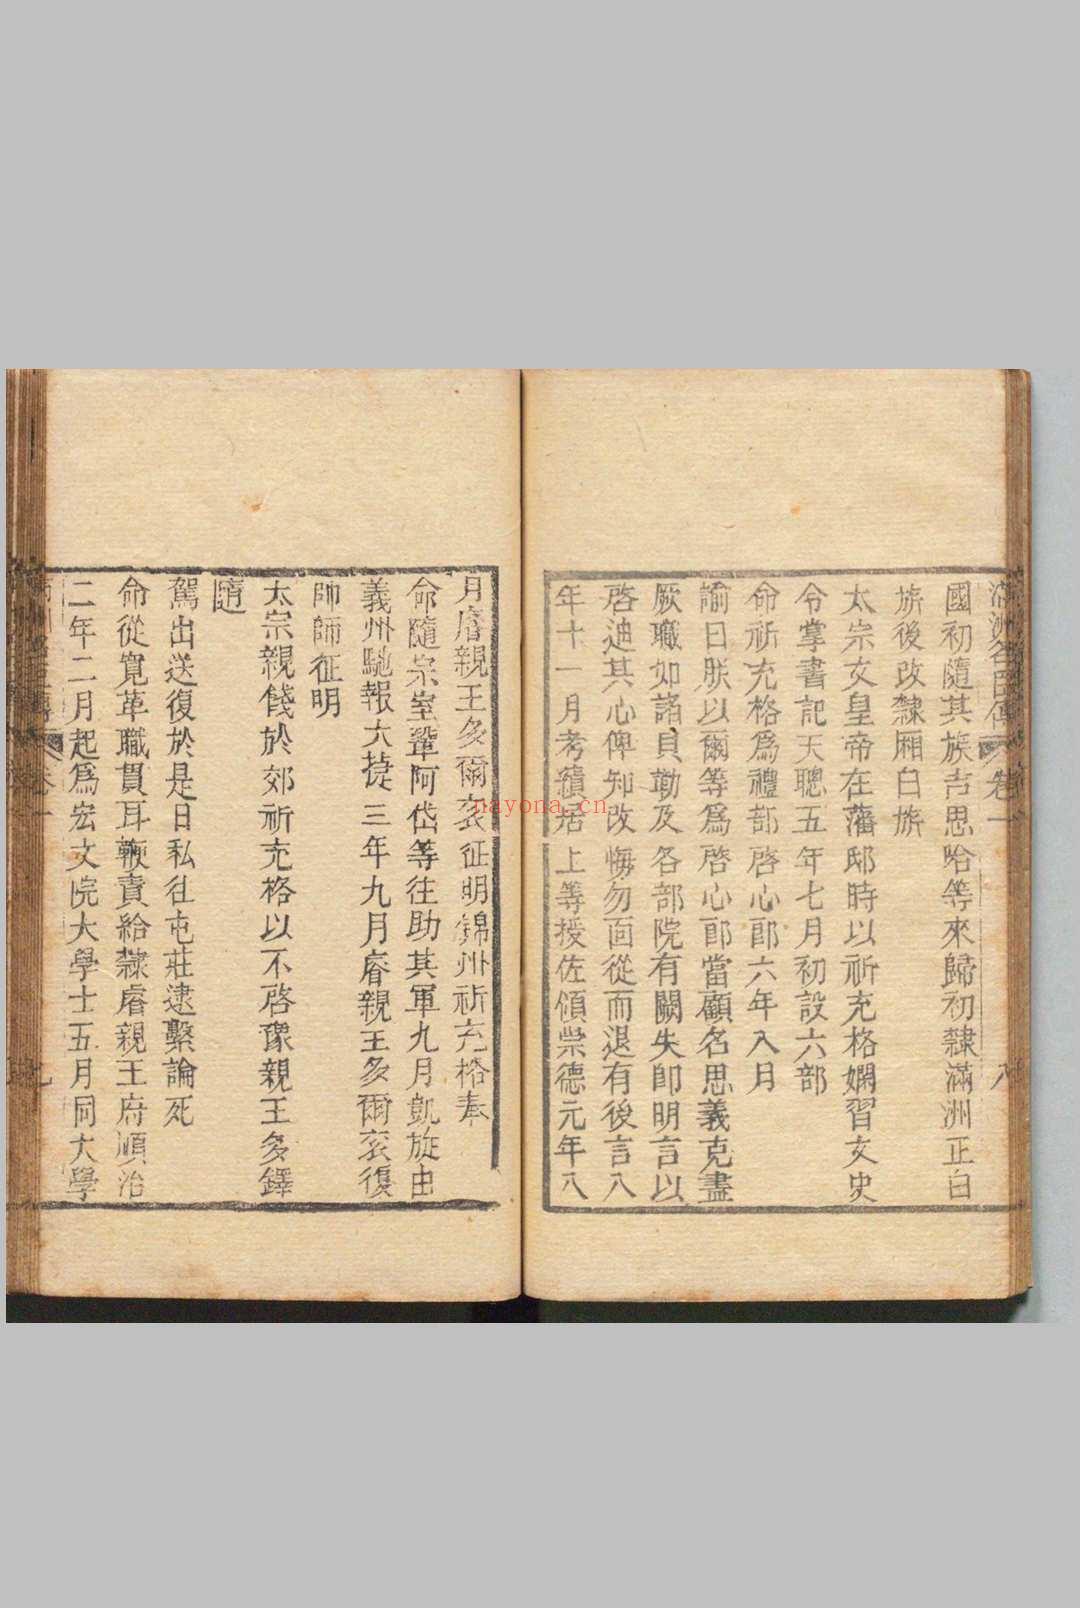 滿洲名臣傳 卷一 八
國初隨其族吉思哈等來歸初隸滿洲正白
旗後改隸廂白旗
太宗文皇帝在藩邸時以祈充格嫻習文史
令掌書記天聰五年七月初設六部
命祈充格爲禮部啓心郎六年八月
諭曰朕以爾等爲啓心郎當顧名思義克盡
厥職如諸貝勒及各部院有闕失卽明言以
啓迪其心俾知改悔勿面從而退有後言八
年十一月考績居上等授佐領崇德元年八
月睿親王多爾袞征明錦州祈充格奉
命隨宗室鞏阿岱等往助其軍九月凱旋由
義州馳報大捷三年九月睿親王多爾袞復
帥師征明
太宗親餞於郊祈充格以不啓豫親王多鐸
隨
駕出送復於是日私往屯莊逮繫論死
命從寬革職貫耳鞭責給隸睿親王府順治
二年二月起爲宏文院大學士五月同大學
卷一
nayona.cn